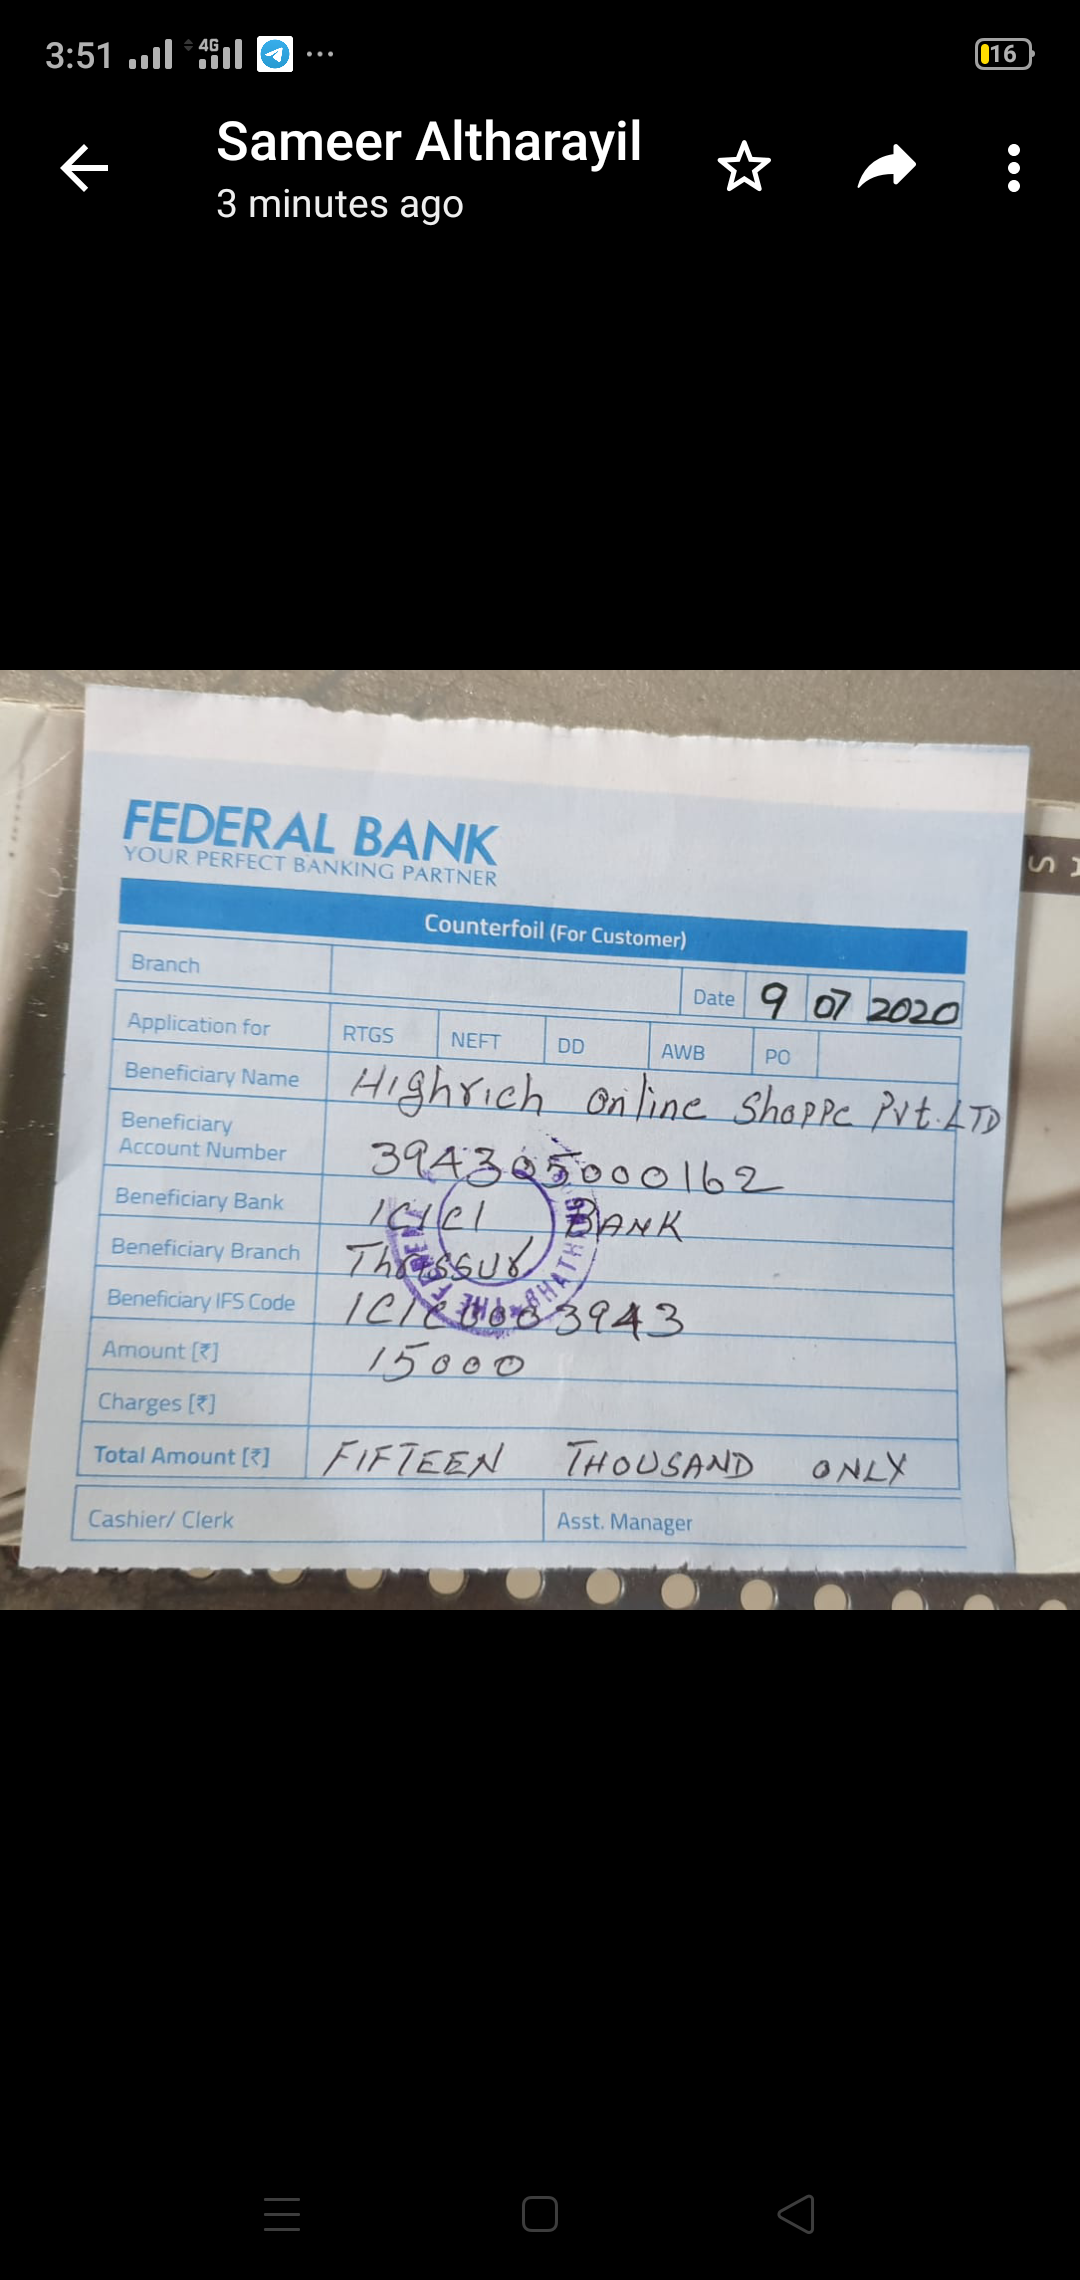 3:51 4G 16
Sameer Altharayil
3 minutes ago
FEDERAL BANK
YOUR PERFECT BANKING PARTNER
Counterfoil (For Customer)
Branch Date 9 07 2020
Application for RTGS NEFT DD AWB PO
Beneficiary Name Highrich Online Shoppe Pvt.LTD
Beneficiary
Account Number 394305000162
Beneficiary Bank ICICI BANK
Beneficiary Branch Thrissur
Beneficiary IFS Code ICIC0003943
Amount [₹] 15000
Charges [₹]
Total Amount [₹] FIFTEEN THOUSAND ONLY
Cashier/ Clerk Asst. Manager
THE